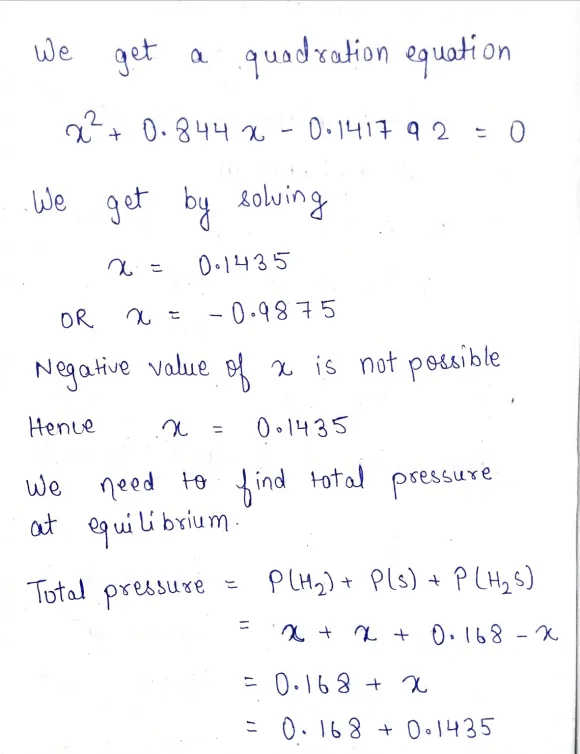 We get a quadration equation
x² + 0.844 x - 0.141792 = 0
We get by solving
x = 0.1435
OR x = -0.9875
Negative value of x is not possible
Hence x = 0.1435
We need to find total pressure
at equilibrium.
Total pressure = P(H₂) + P(s) + P(H₂S)
= x + x + 0.168 - x
= 0.168 + x
= 0.168 + 0.1435